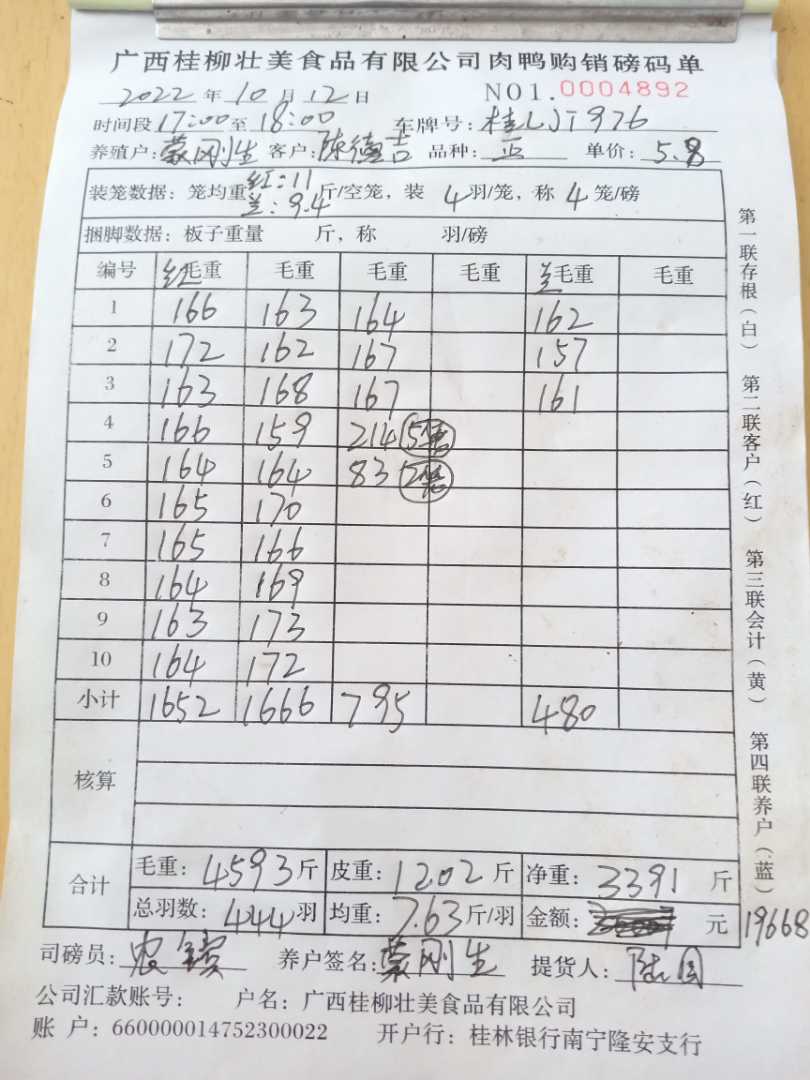 广西桂柳壮美食品有限公司肉鸭购销磅码单
2022年10月12日 NO1.0004892
时间段17:00至18:00 车牌号:
养殖户:蒙刚生 客户:陈德吉 品种:正 单价:5.8
装笼数据:笼均重红:11 兰:9.4斤/空笼,装4羽/笼,称4笼/磅
捆脚数据:板子重量 斤,称 羽/磅
编号 红毛重 毛重 毛重 毛重 兰毛重 毛重
1 166 163 164 162
2 172 162 167 157
3 163 168 167 161
4 166 159 214
5 164 164 83
6 165 170
7 165 166
8 164 169
9 163 173
10 164 172
小计 1652 1666 795 480
核算
合计 毛重:4593斤 皮重:1202斤 净重:3391斤
总羽数:444羽 均重:7.63斤/羽 金额: 元 19668
司磅员: 养户签名:蒙刚生 提货人:
公司汇款账号: 户名:广西桂柳壮美食品有限公司
账 户:660000014752300022 开户行:桂林银行南宁隆安支行
第一联存根(白) 第二联客户(红) 第三联会计(黄) 第四联养户(蓝)